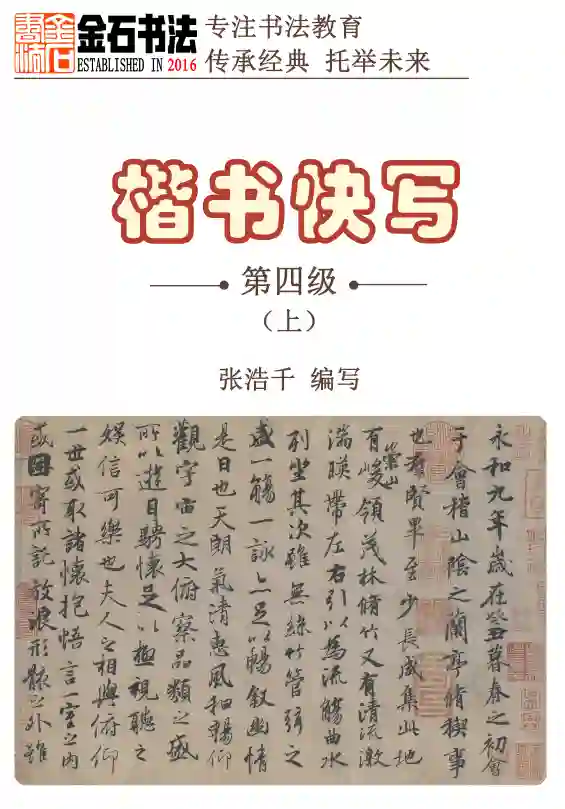 金石书法
ESTABLISHED IN 2016
专注书法教育
传承经典 托举未来
楷书快写
第四级
（上）
张浩千 编写
永和九年歲在癸丑暮春之初會
于會稽山陰之蘭亭脩稧事
也羣賢畢至少長咸集此地
有崇山峻領茂林脩竹又有清流激
湍暎帶左右引以為流觴曲水
列坐其次雖無絲竹管弦之
盛一觴一詠亦足以暢敘幽情
是日也天朗氣清惠風和暢仰
觀宇宙之大俯察品類之盛
所以遊目騁懷足以極視聽之
娛信可樂也夫人之相與俯仰
一世或取諸懷抱悟言一室之內
或因寄所託放浪形骸之外雖